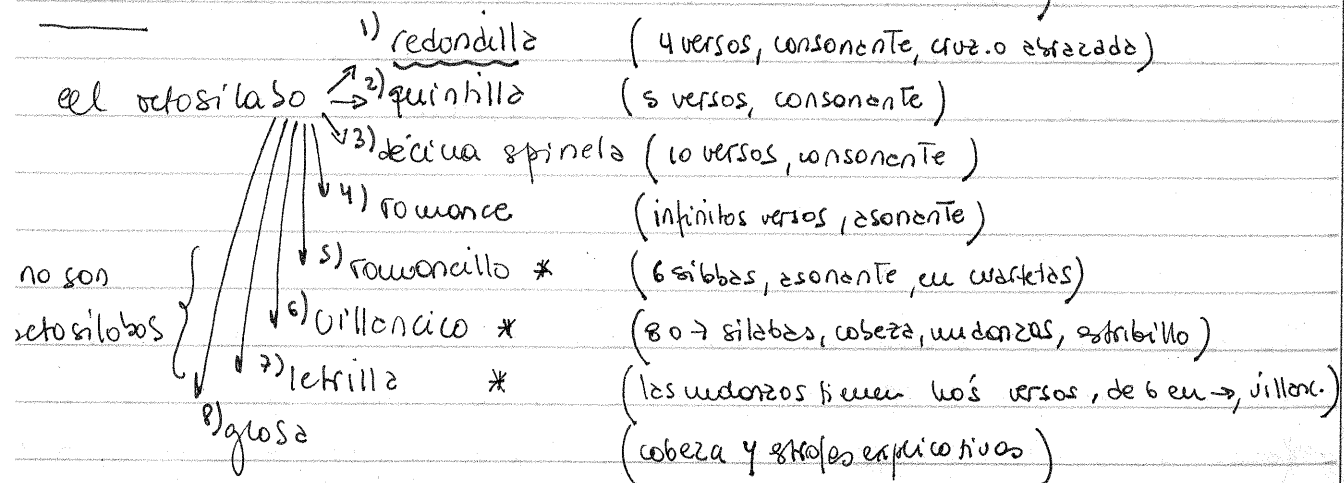 1) redondilla (4 versos, consonante, cruz. o abrazada)
el octosílabo 2) quintilla (5 versos, consonante)
3) décima espinela (10 versos, consonante)
4) romance (infinitos versos, asonante)
5) romancillo * (6 sílabas, asonante, en cuartetas)
no son
octosílabos
6) villancico * (8 o 7 sílabas, cabeza, mudanzas, estribillo)
7) letrilla * (las mudanzas tienen más versos, de 6 en →, villanc.)
8) glosa (cabeza y estrofas explicativas)